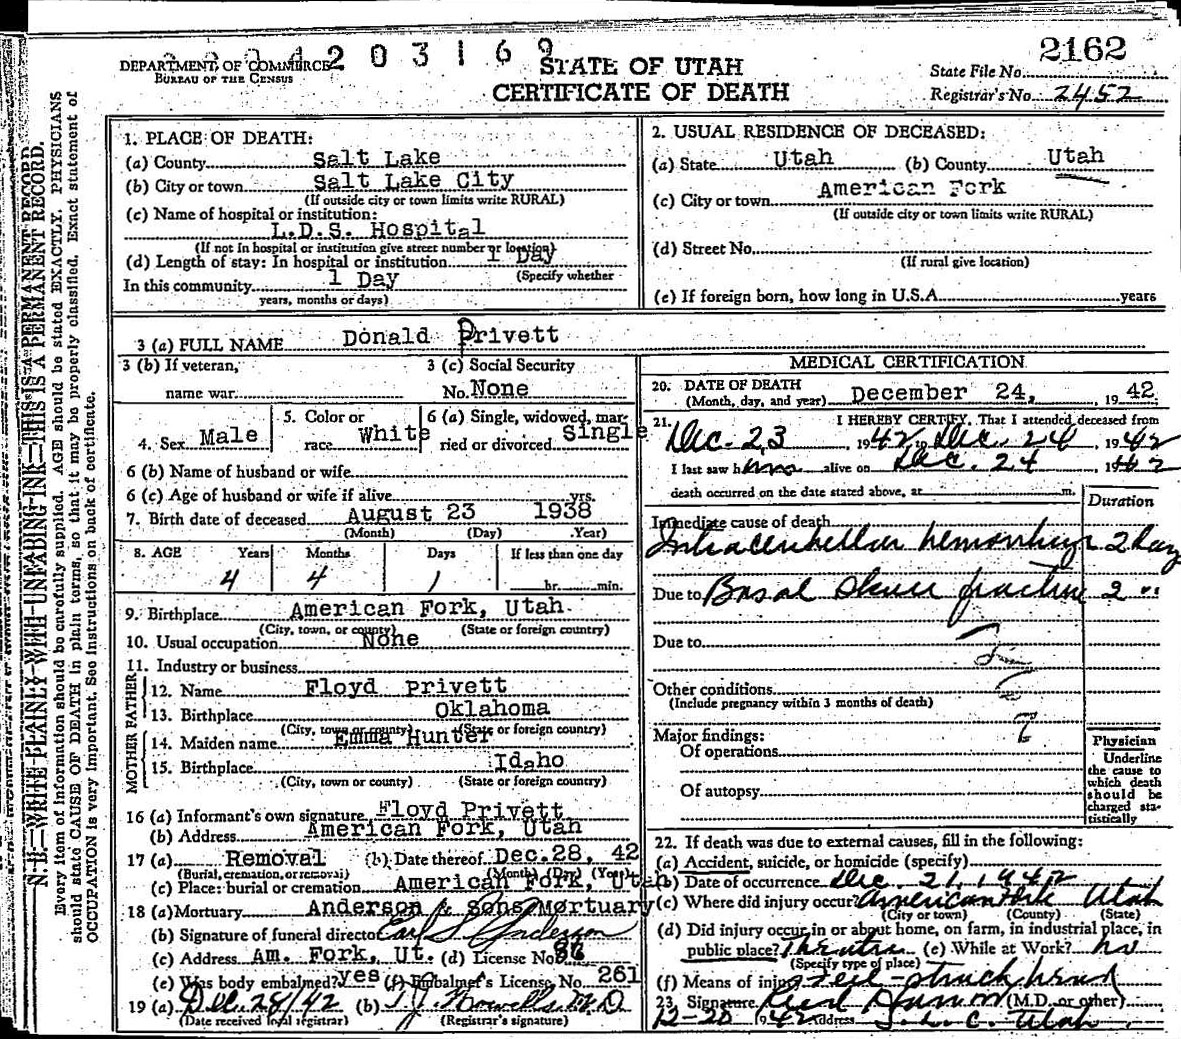 DEPARTMENT OF COMMERCE
BUREAU OF THE CENSUS
203169
STATE OF UTAH
CERTIFICATE OF DEATH
2162
State File No.
Registrar's No. 2452
N. B.—WRITE PLAINLY WITH UNFADING INK—THIS IS A PERMANENT RECORD.
Every item of information should be carefully supplied. AGE should be stated EXACTLY. PHYSICIANS
should state CAUSE OF DEATH in plain terms, so that it may be properly classified. Exact statement of
OCCUPATION is very important. See instructions on back of certificate.
1. PLACE OF DEATH:
(a) County Salt Lake
(b) City or town Salt Lake City
(If outside city or town limits write RURAL)
(c) Name of hospital or institution:
L.D.S. Hospital
(If not in hospital or institution give street number or location)
(d) Length of stay: In hospital or institution 1 Day
(Specify whether
In this community 1 Day
years, months or days)
2. USUAL RESIDENCE OF DECEASED:
(a) State Utah (b) County Utah
(c) City or town American Fork
(If outside city or town limits write RURAL)
(d) Street No.
(If rural give location)
(e) If foreign born, how long in U.S.A. years
3 (a) FULL NAME Donald Privett
3 (b) If veteran,
name war
3 (c) Social Security
No. None
4. Sex Male
5. Color or
race White
6 (a) Single, widowed, mar-
ried or divorced Single
6 (b) Name of husband or wife
6 (c) Age of husband or wife if alive yrs.
7. Birth date of deceased August 23 1938
(Month) (Day) (Year)
8. AGE Years Months Days If less than one day
4 4 1 hr. min.
9. Birthplace American Fork, Utah
(City, town, or county) (State or foreign country)
10. Usual occupation None
11. Industry or business
FATHER
12. Name Floyd Privett
13. Birthplace Oklahoma
(City, town or county) (State or foreign country)
MOTHER
14. Maiden name Emma Hunter
15. Birthplace Idaho
(City, town or county) (State or foreign country)
16 (a) Informant's own signature Floyd Privett
(b) Address American Fork, Utah
17 (a) Removal (b) Date thereof Dec. 28, 42
(Burial, cremation, or removal) (Month) (Day) (Year)
(c) Place: burial or cremation American Fork, Utah
18 (a) Mortuary Anderson & Sons Mortuary
(b) Signature of funeral director Earl S Anderson
(c) Address Am. Fork, Ut. (d) License No. 86
(e) Was body embalmed? yes (f) Embalmer's License No. 261
19 (a) Dec. 28/42 (b) T.J. Howells M.D.
(Date received local registrar) (Registrar's signature)
MEDICAL CERTIFICATION
20. DATE OF DEATH
(Month, day, and year) December 24, 1942
21. I HEREBY CERTIFY, That I attended deceased from
Dec. 23 1942 to Dec. 24 1942
I last saw him alive on Dec. 24 1942
death occurred on the date stated above, at m.
Duration
Immediate cause of death
Intracerebellar hemorrhage 2 day
Due to Basal skull fracture 2 "
Due to
Other conditions
(Include pregnancy within 3 months of death)
Major findings:
Of operations
Of autopsy
Physician
Underline
the cause to
which death
should be
charged sta-
tistically
22. If death was due to external causes, fill in the following:
(a) Accident, suicide, or homicide (specify)
(b) Date of occurrence Dec. 21, 1942
(c) Where did injury occur? American Fork Utah
(City or town) (County) (State)
(d) Did injury occur in or about home, on farm, in industrial place, in
public place? Theatre (e) While at Work? no
(Specify type of place)
(f) Means of injury Fell struck head
23. Signature (M.D. or other)
1942 Address S.L.C. Utah